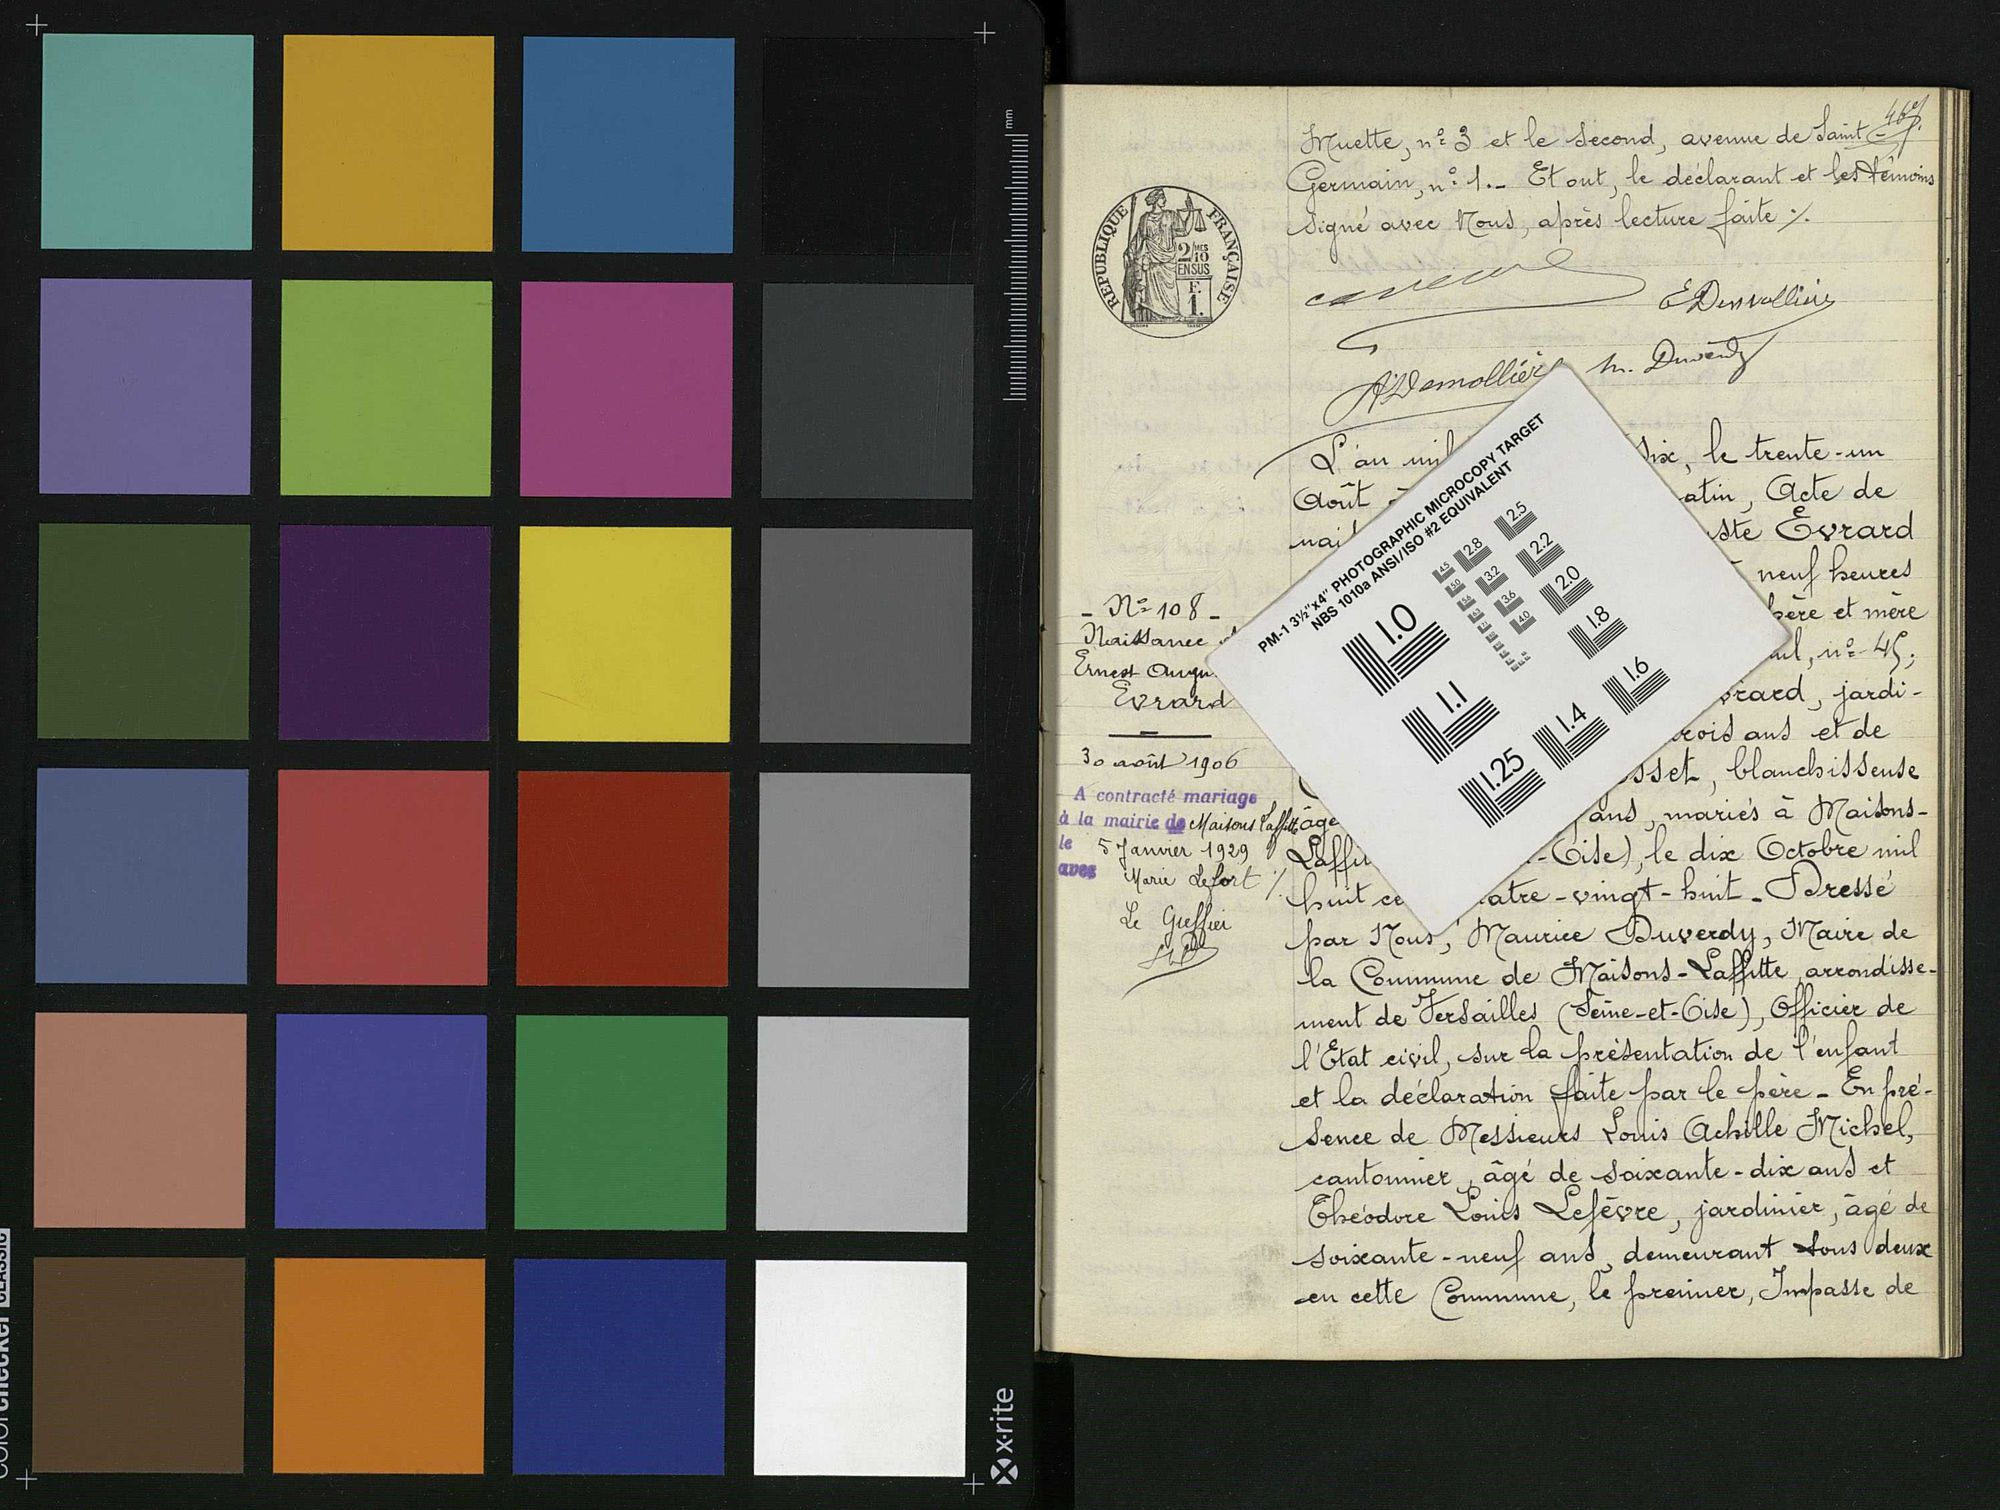 colorchecker CLASSIC
x-rite
mm
467
Muette, n° 3 et le second, avenue de Saint-
Germain, n° 1._ Et ont, le déclarant et les témoins
signé avec Nous, après lecture faite ./.
REPUBLIQUE FRANÇAISE
2/10 MES
EN SUS
F.
1.
M. Duverdy
L'an mil six, le trente-un
Août atin, Acte de
nai uste Evrard
neuf heures
père et mère
n° 45;
vrard, jardi-
trois ans et de
osset, blanchisseuse
âgé ans, mariés à Maisons-
Laffit -Oise), le dix Octobre mil
huit ce atre-vingt-huit._ Dressé
par Nous, Maurice Duverdy, Maire de
la Commune de Maisons-Laffitte, arrondisse-
ment de Versailles (Seine-et-Oise), Officier de
l'Etat civil, sur la présentation de l'enfant
et la déclaration faite par le père _ En pré-
sence de Messieurs Louis Achille Michel,
cantonnier, âgé de soixante-dix ans et
Théodore Louis Lefèvre, jardinier, âgé de
soixante-neuf ans, demeurant tous deux
en cette Commune, le premier, Impasse de
_ N° 108 _
Naissance
Ernest Augu
Evrard
30 août 1906
A contracté mariage
à la mairie de Maisons Laffitte
le 5 Janvier 1929
avec Marie Lefort ./.
Le Greffier
PM-1 3½"x4" PHOTOGRAPHIC MICROCOPY TARGET
NBS 1010a ANSI/ISO #2 EQUIVALENT
1.0
1.1
1.25
1.4
1.6
1.8
2.0
2.2
2.5
2.8
3.2
3.6
4.0
4.5
5.0
5.6
6.3